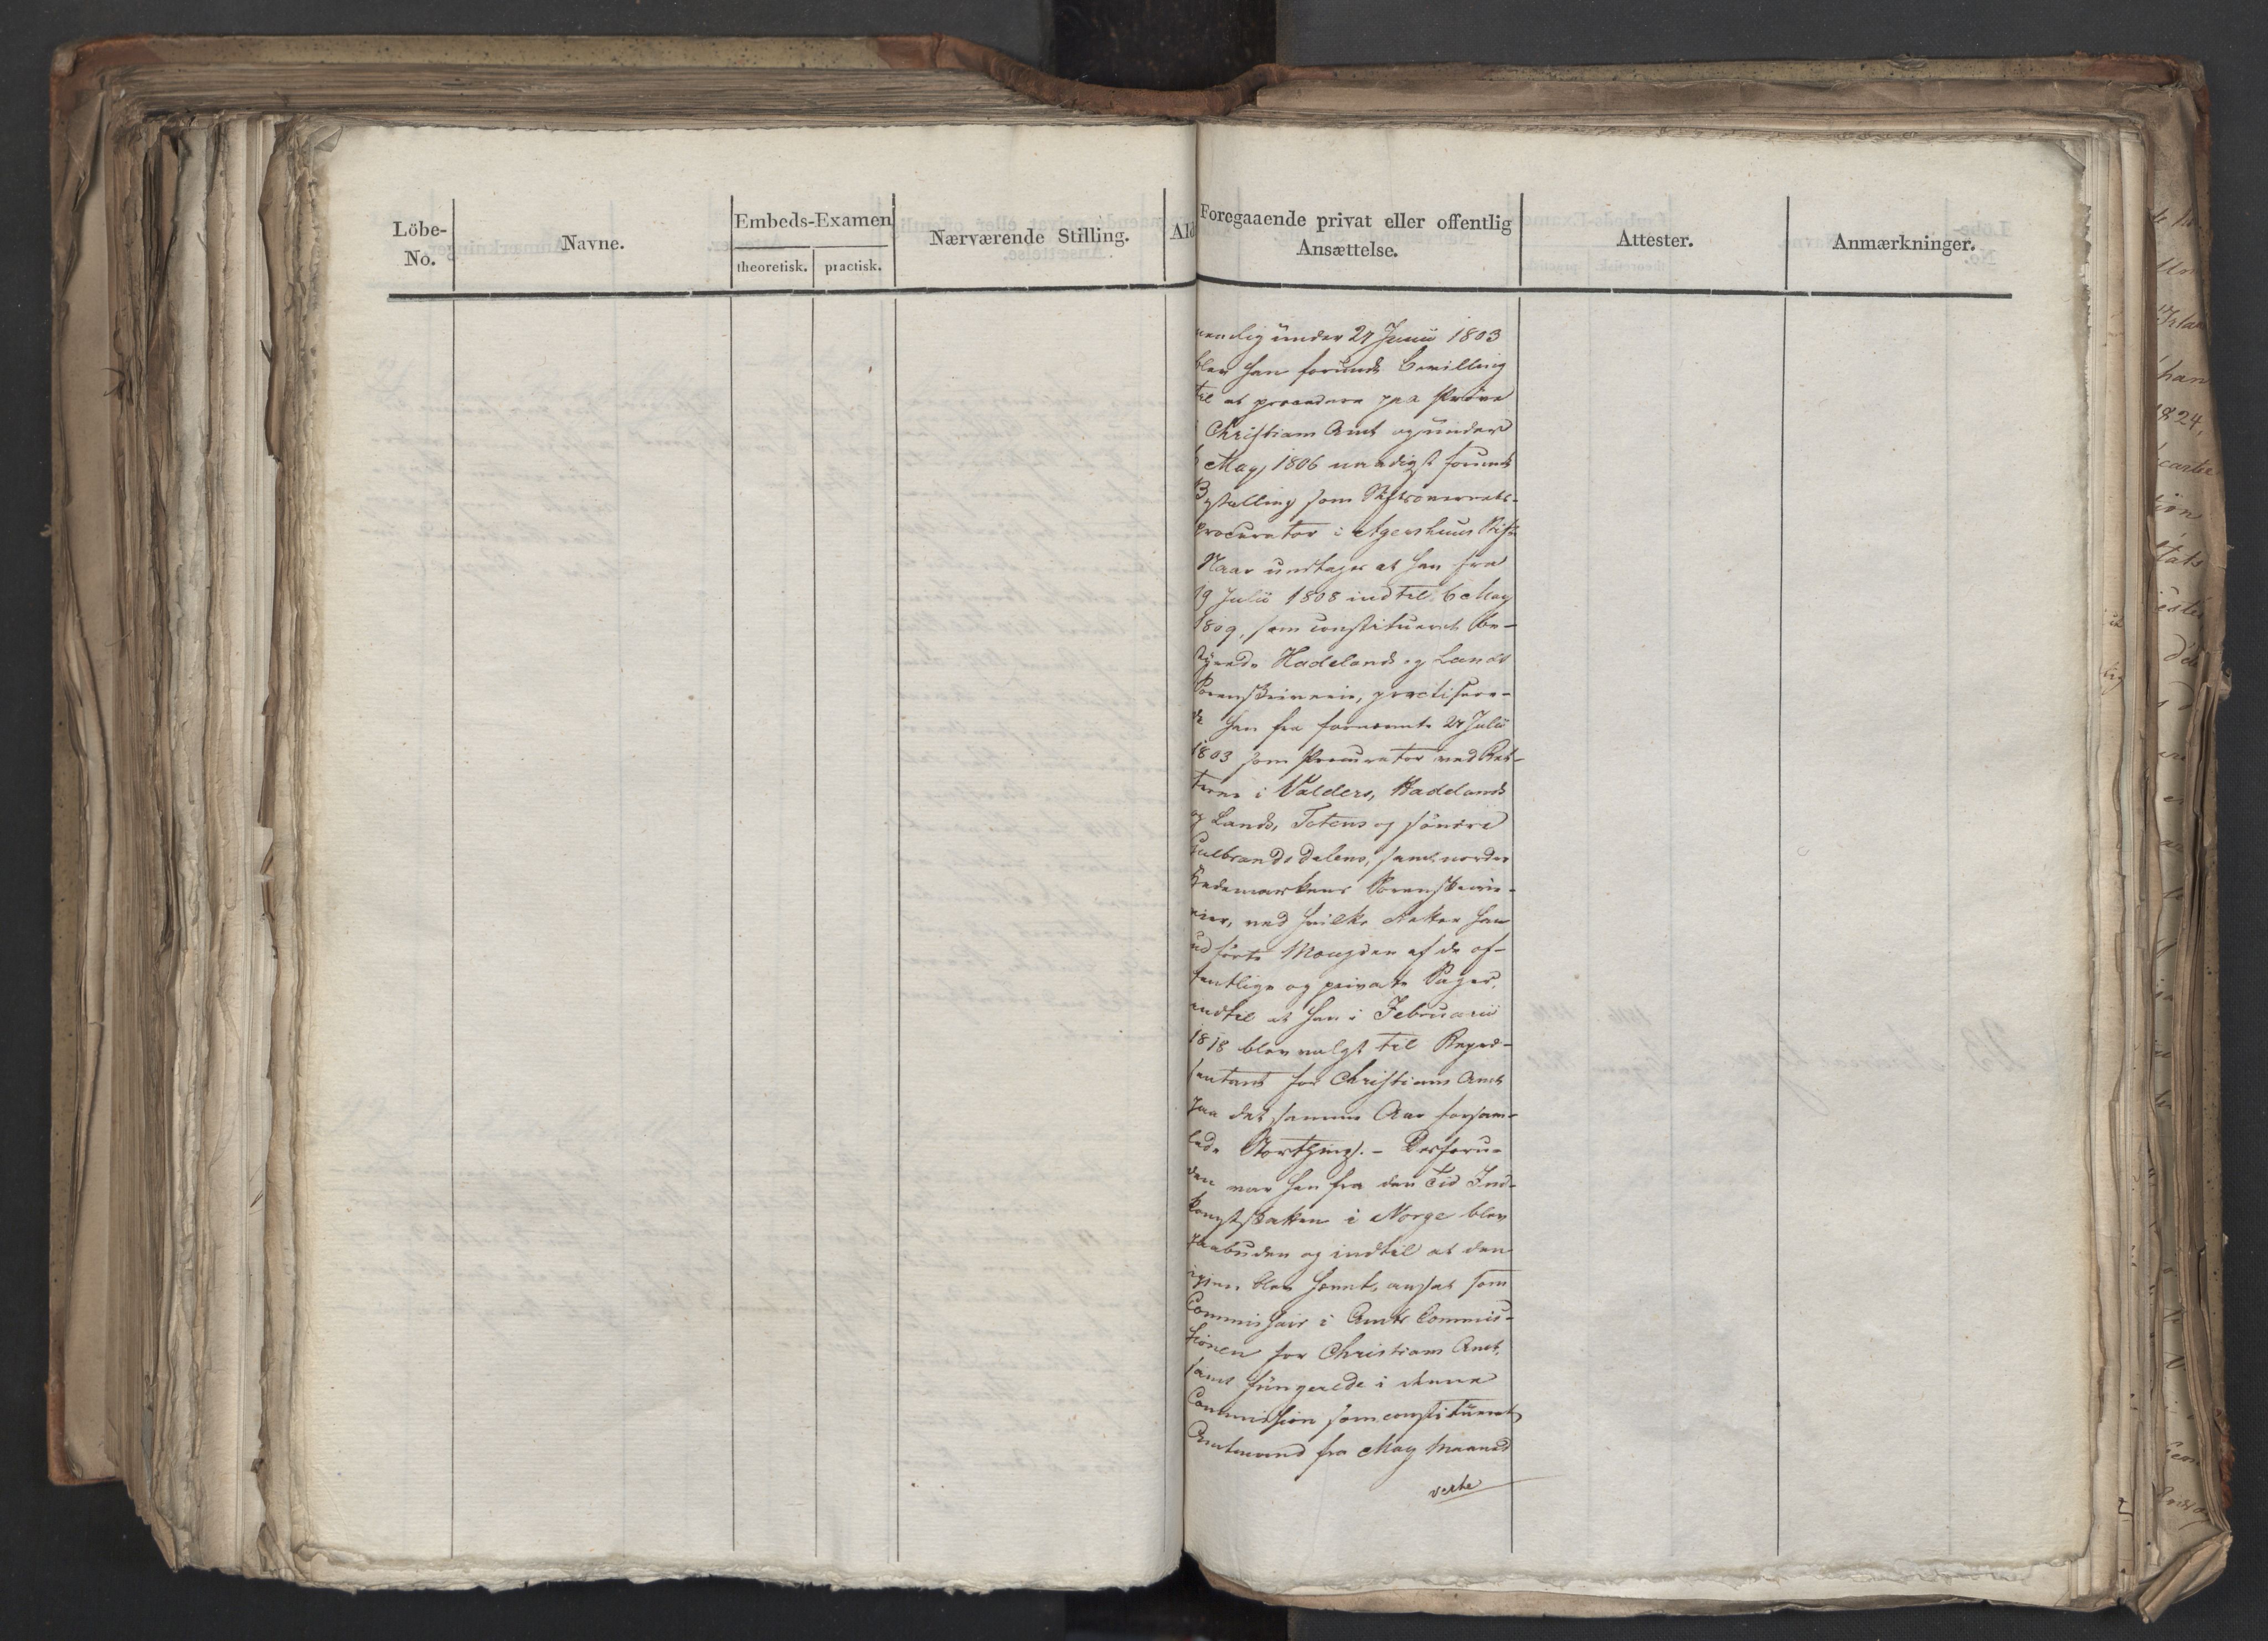 Löbe-
No.
Navne.
Embeds-Examen
theoretisk.
practisk.
Nærværende Stilling.
Ald
Foregaaende privat eller offentlig
Ansættelse.
Attester.
Anmærkninger.
nemlig under 27 Junii 1803
blev han forundt Bevilling
til at procedere paa Prøve
i Christians Amt og under
6 May 1806 naadigst forundt
Bestalling som Overrets-
procurator i Agershuus Stift
Naar undtages at han fra
19 Julii 1808 indtil 6 May
1809, som constitueret be-
styrede Hadelands og Lands
Sorenskriverie, practisere-
de han fra fornævnte 27 Julii
1803 som Procurator ved Ret-
terne i Valders, Hadelands
og Lands, Totens og søndre
Gulbrandsdalens, samt nordre
Hedemarkens Sorenskrive-
rier, ved hvilke Retter han
udførte Mængden af de of-
fentlige og private Sager,
indtil at han i Februarii
1818 blev valgt til Repræ-
sentant for Christians Amt
paa det samme Aar forsam-
lede Storthing. - Desforu-
den var han fra den Tid Ind-
komstskatten i Norge blev
paabuden og indtil at den
igjen blev hævet, ansat som
Commissair i Amts Commis-
sionen for Christians Amt,
samt fungerede i denne
Commission som constitueret
Amtmand fra May Maaned
verte